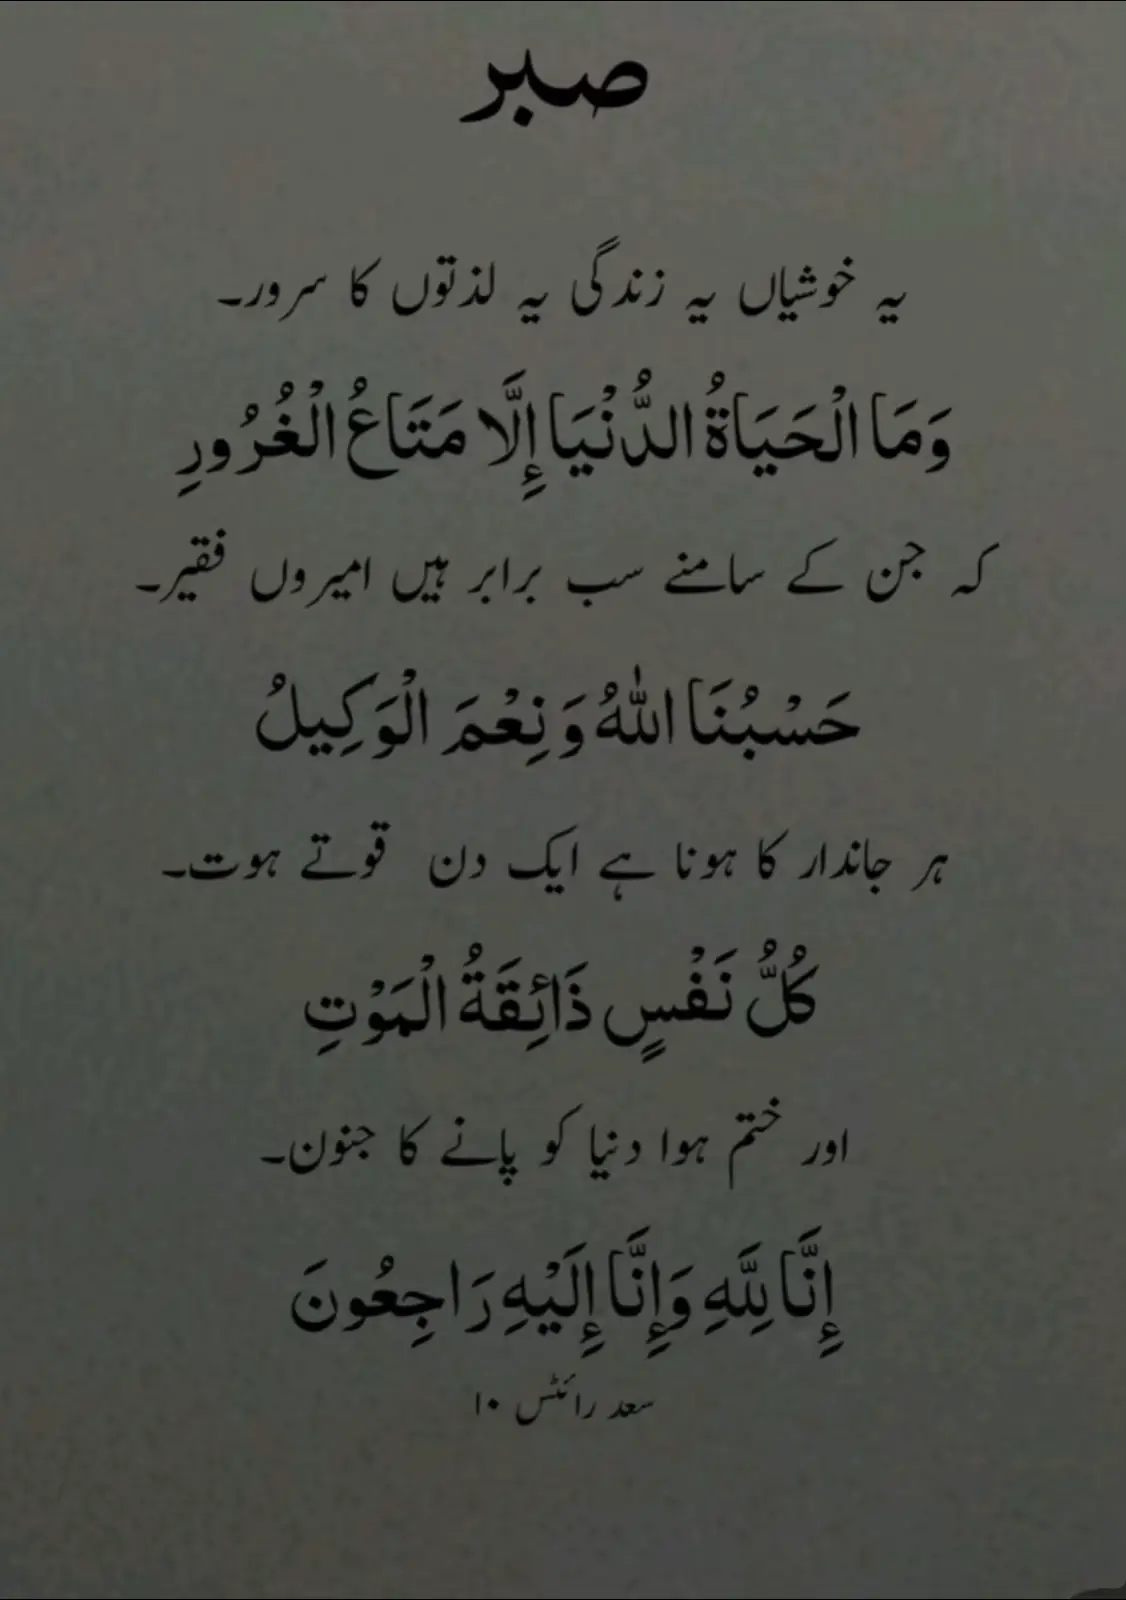 صبر
یہ خوشیاں یہ زندگی یہ لذتوں کا سرور۔
وَمَا الْحَيَاةُ الدُّنْيَا إِلَّا مَتَاعُ الْغُرُورِ
کہ جن کے سامنے سب برابر ہیں امیروں فقیر۔
حَسْبُنَا اللّٰهُ وَنِعْمَ الْوَكِيلُ
ہر جاندار کا ہونا ہے ایک دن قوتے ہوت۔
كُلُّ نَفْسٍ ذَائِقَةُ الْمَوْتِ
اور ختم ہوا دنیا کو پانے کا جنون۔
إِنَّا لِلَّهِ وَإِنَّا إِلَيْهِ رَاجِعُونَ
سعد رائٹس ۱۰